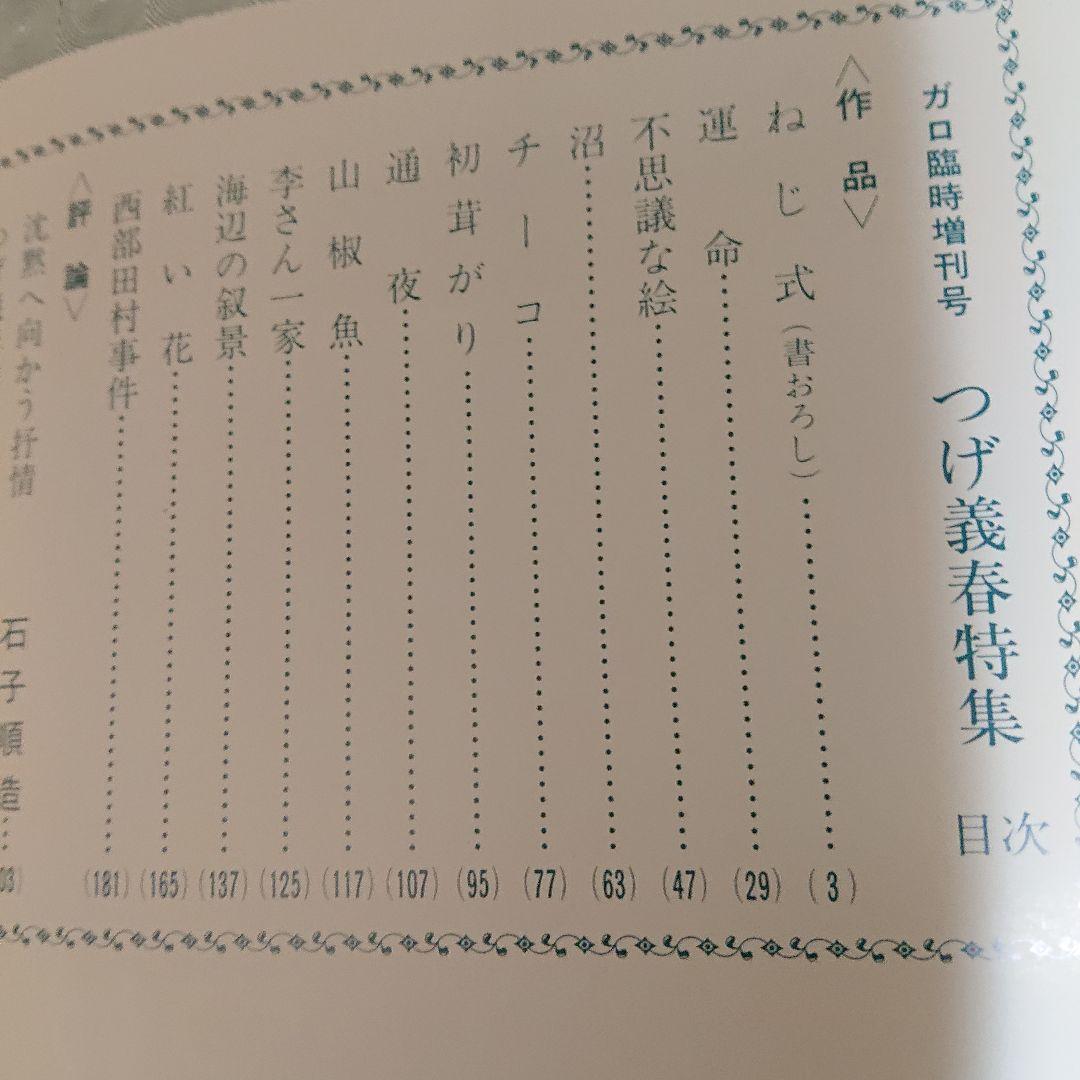 ガロ臨時増刊号 つげ義春特集 目次
〈作品〉
ねじ式(書おろし)………(3)
運命………(29)
不思議な絵………(47)
沼………(63)
チーコ………(77)
初茸がり………(95)
通夜………(107)
山椒魚………(117)
李さん一家………(125)
海辺の叙景………(137)
紅い花………(165)
西部田村事件………(181)
〈評論〉
沈黙へ向かう抒情 石子順造………